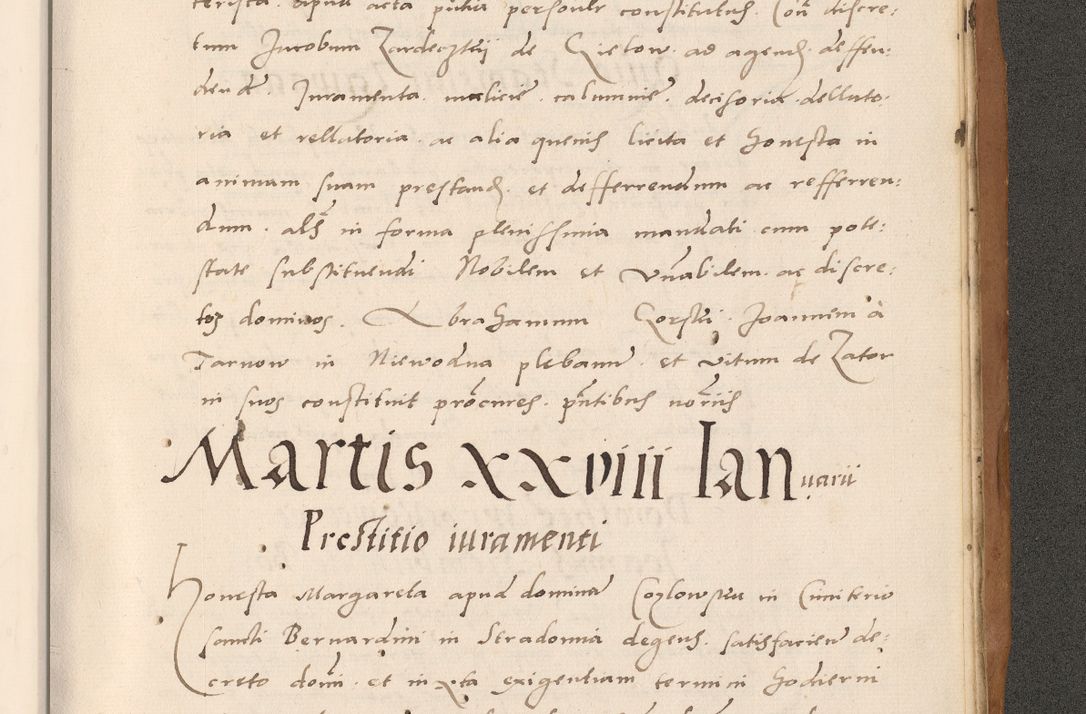 terisca. apud acta pnlia personlr constitutus. Con discre:
tum Jacobum Zardeczkij de Gielow. ad agend. deffen:
dend. Juramenta. malicie. calumnie. decisoria. dellato:
ria et rellatoria. ac alia quevis licita et honesta in
animam suam prestand. et defferrendum ac refferren:
dum. als in forma plenissima mandati cum pote:
state substituendi Nobilem et Vnabilem. ac discre:
tos dominos. Abrahamum Gorski. Joannem à
Tarnow in Niewodna plebanum. et Vitum de Zator
in suos constituit procures. pntibus noriis
Martis xxviiii Ianuarii
Prestitio iuramenti
Honesta Margareta apud dominam Cozlowska in Cimiterio
sancti Bernardini in Stradomia degens. satisfaciend de:
creto domi. et in xta exigentiam termini hodierni